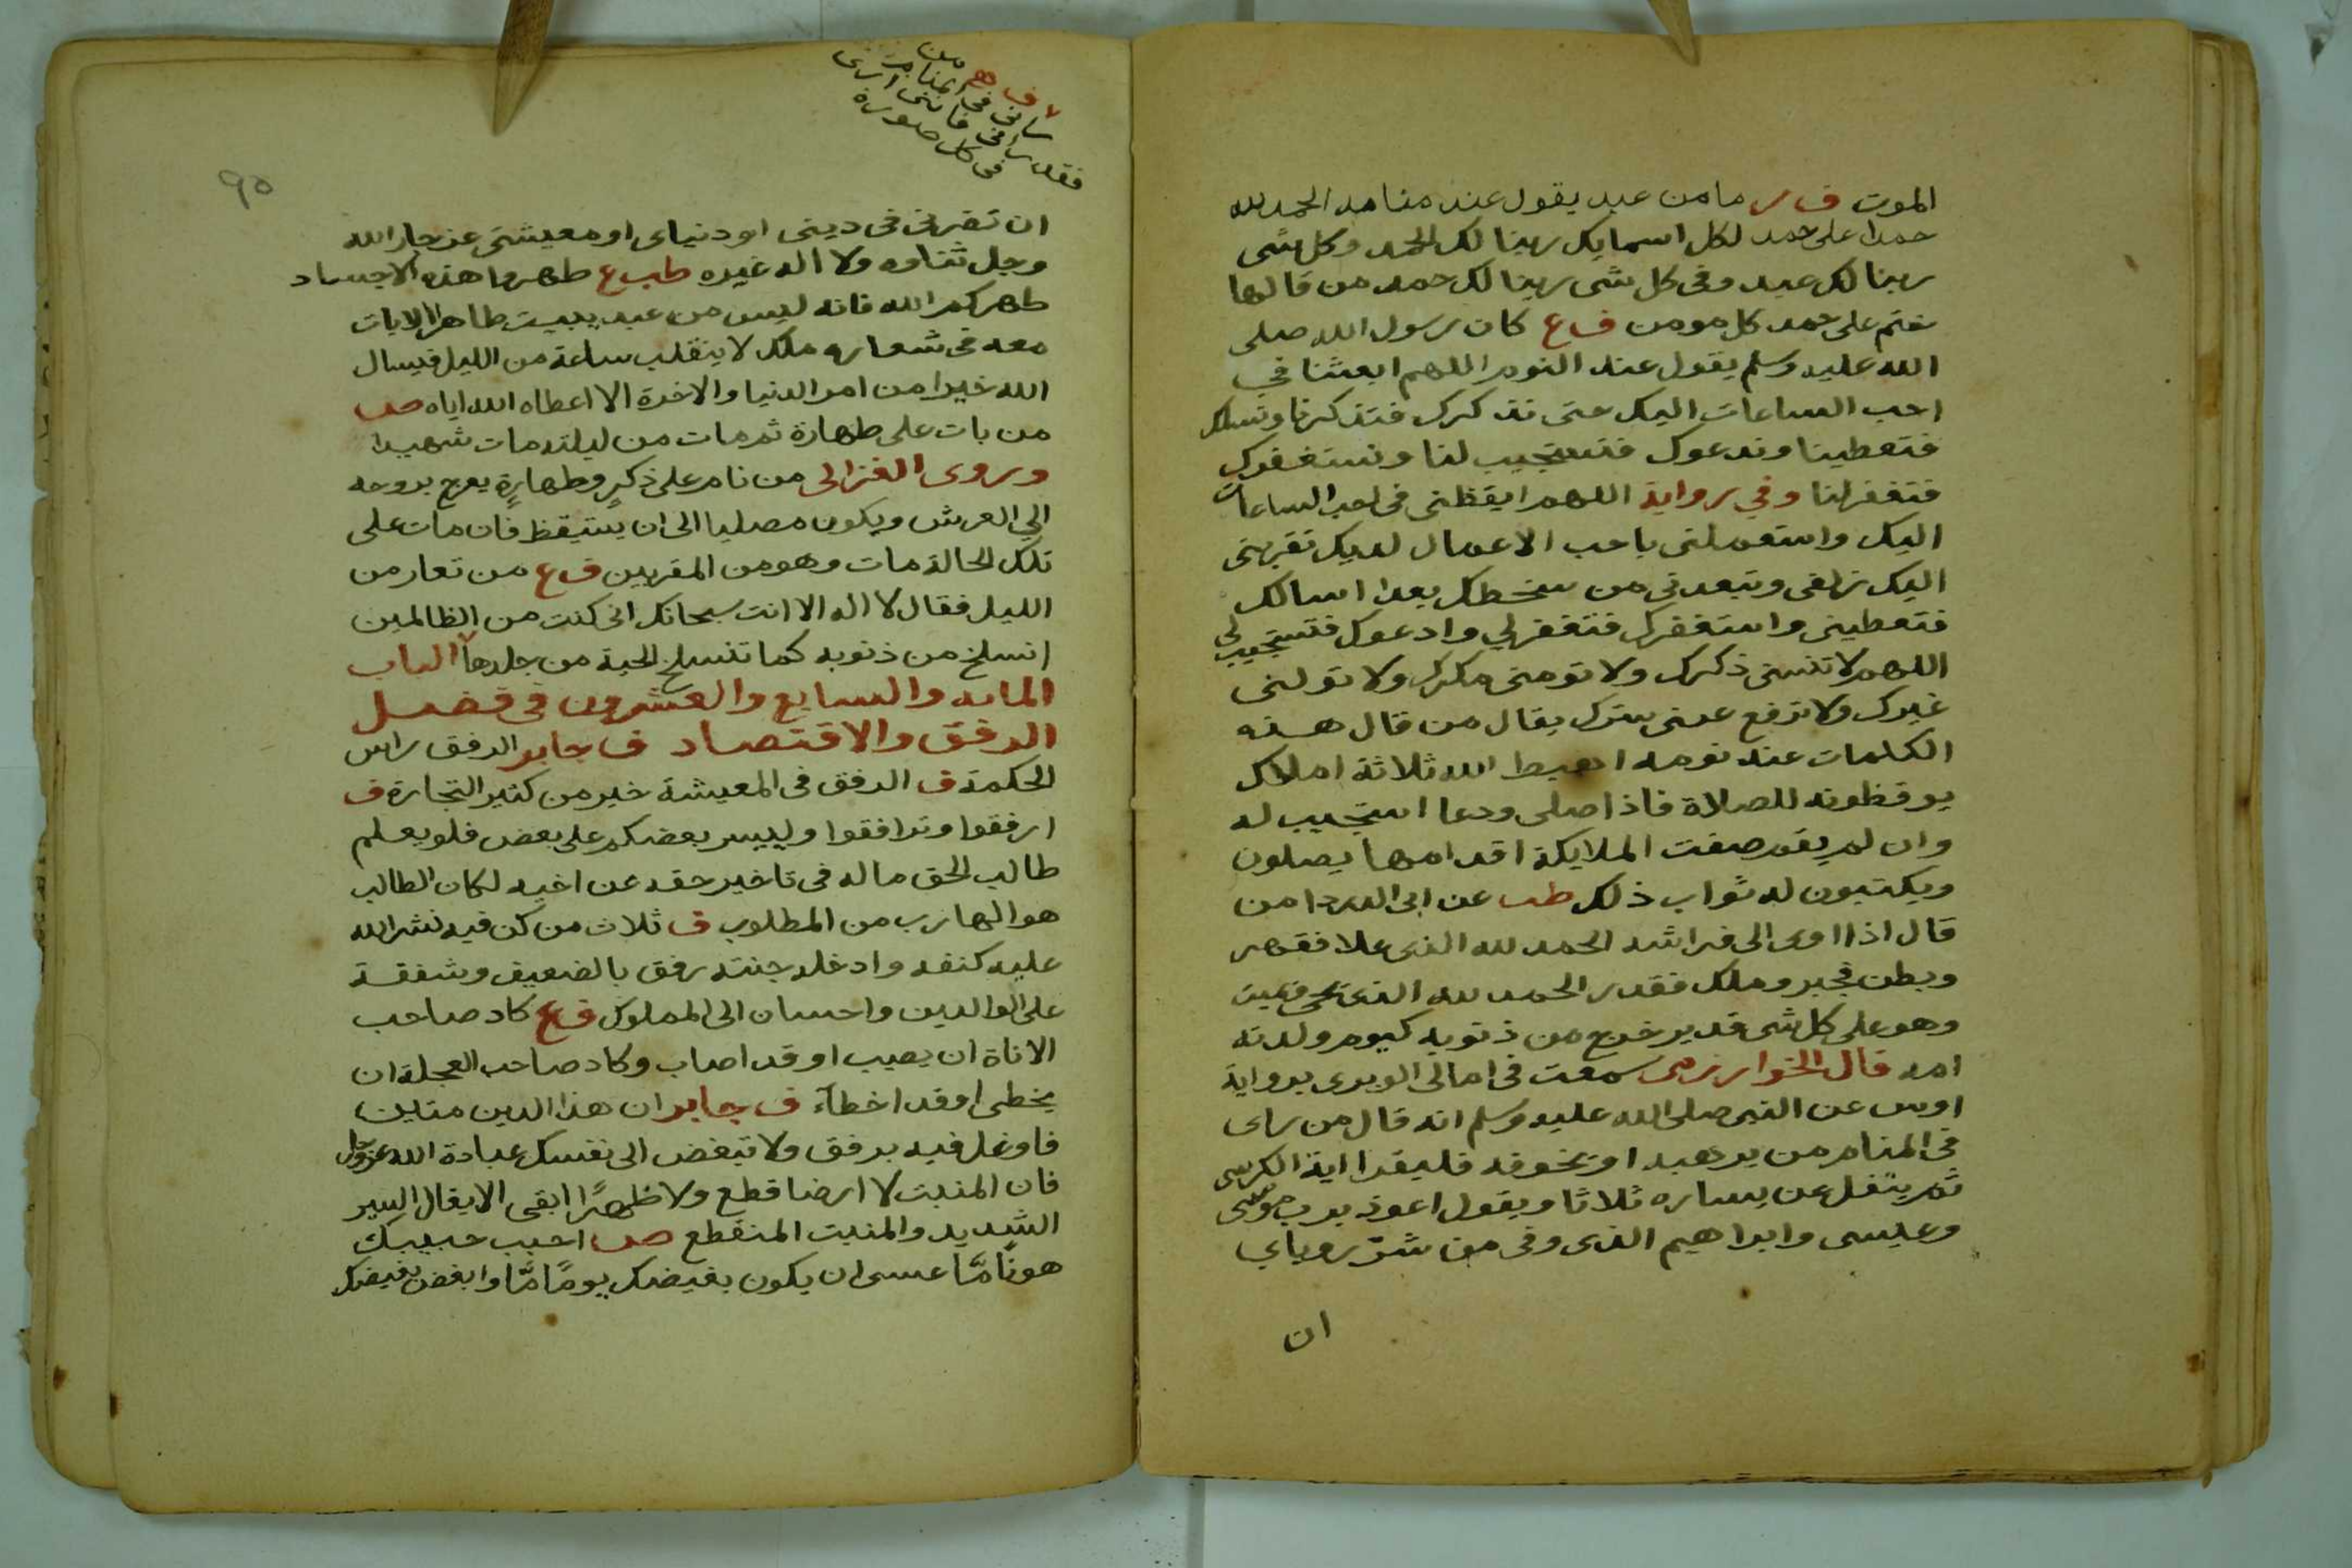 الموت ف ر ما من عبد يقول عند منامه الحمد لله
حمدا على حمد لكل اسمايك ربنا لك الحمد وكل شى
ربنا لك عبد وفى كل شى ربنا لك حمد من قالها
ختم على حمد كل مومن ف ع كان رسول الله صلى
الله عليه وسلم يقول عند النوم اللهم ابعثنا في
احب الساعات اليك حتى نذكرك فتذكرنا ونسلك
فتعطينا وندعوك فتستجيب لنا ونستغفرك
فتغفر لنا وفي رواية اللهم ايقظنى فى احب الساعات
اليك واستعملنى باحب الاعمال لديك تقربنى
اليك زلفى وتبعدنى من سخطك بعدا اسالك
فتعطينى واستغفرك فتغفر لي وادعوك فتستجيب لى
اللهم لا تنسنى ذكرك ولا تومنى مكرك ولا تولنى
غيرك ولا ترفع عنى سترك يقال من قال هذه
الكلمات عند نومه اهبط الله ثلاثة املاك
يوقظونه للصلاة فاذا صلى ودعا استجيب له
وان لم يقم صفت الملايكة اقدامها يصلون
ويكتبون له ثواب ذلك طب عن ابى الدردا من
قال اذا اوى الى فراشه الحمد لله الذى علا فقهر
وبطن فخبر وملك فقدر الحمد لله الذى يحى ويميت
وهو على كل شى قدير خرج من ذنوبه كيوم ولدته
امه قال الخوارزمى سمعت فى امالى الوبرى برواية
اوس عن النبى صلى الله عليه وسلم انه قال من راى
فى المنام من يرهبه او يخوفه فليقرا اية الكرسى
ثم يتفل عن يساره ثلاثا ويقول اعوذ برب موسى
وعيسى وابراهيم الذى وفى من شرّ روياي
ان
ف هم من
رانى فى المنام
فقد رانى فاننى ارى
فى كل صورة
٩٥
ان تضرنى فى دينى او دنياى او معيشتى عز جار الله
وجل ثناوه ولا اله غيره طب ع طهروا هذه الاجساد
طهركم الله فانه ليس من عبد يبيت طاهرا الا بات
معه فى شعاره ملك لا ينقلب ساعة من الليل فيسال
الله خيرا من امر الدنيا والاخرة الا اعطاه الله اياه صب
من بات على طهارة ثم مات من ليلته مات شهيدا
وروى الغزالى من نام على ذكرٍ وطهارةٍ يعرج بروحه
الي العرش ويكون مصليا الى ان يستيقظ فان مات على
تلك الحالة مات وهو من المقربين ف ع من تعار من
الليل فقال لا اله الا انت سبحانك انى كنت من الظالمين
انسلخ من ذنوبه كما تنسلخ الحية من جلدها الباب
المائه والسابع والعشرون فى فضل
الرفق والاقتصاد ف جابر الرفق راس
الحكمة ف الرفق فى المعيشة خير من كثير التجارة ف
ارفقوا وترافقوا ولييسر بعضكم على بعض فلو يعلم
طالب الحق ماله فى تاخير حقه عن اخيه لكان الطالب
هو الهارب من المطلوب ف ثلاث من كن فيه نشر الله
عليه كنفه وادخله جنته رفق بالضعيف وشفقة
على الوالدين واحسان الى المملوك ف ع كاد صاحب
الاناة ان يصيب او قد اصاب وكاد صاحب العجلة ان
يخطى او قد اخطآء ف جابر ان هذا الدين متين
فاوغل فيه برفق ولا تبغض الى نفسك عبادة الله عز وجل
فان المنبت لا ارضا قطع ولا ظهرًا ابقى الايغال السير
الشديد والمنبت المنقطع صب احبب حبيبك
هونًا مّا عسى ان يكون بغيضك يومًا مّا وابغض بغيضك